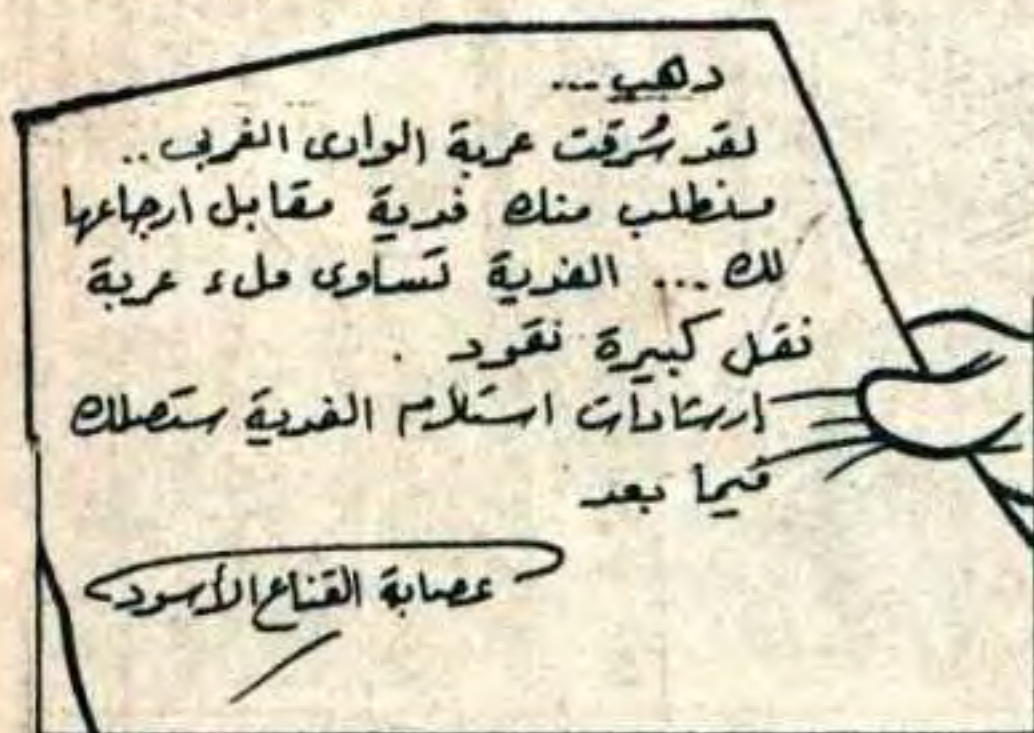 دهب ...
لقد سُرقت عربة الوادى الغربى ..
سنطلب منك فدية مقابل ارجاعها
لك ... الفدية تساوى ملء عربة
نقل كبيرة نقود .
ارشادات استلام الفدية ستصلك
فيما بعد
عصابة القناع الأسود